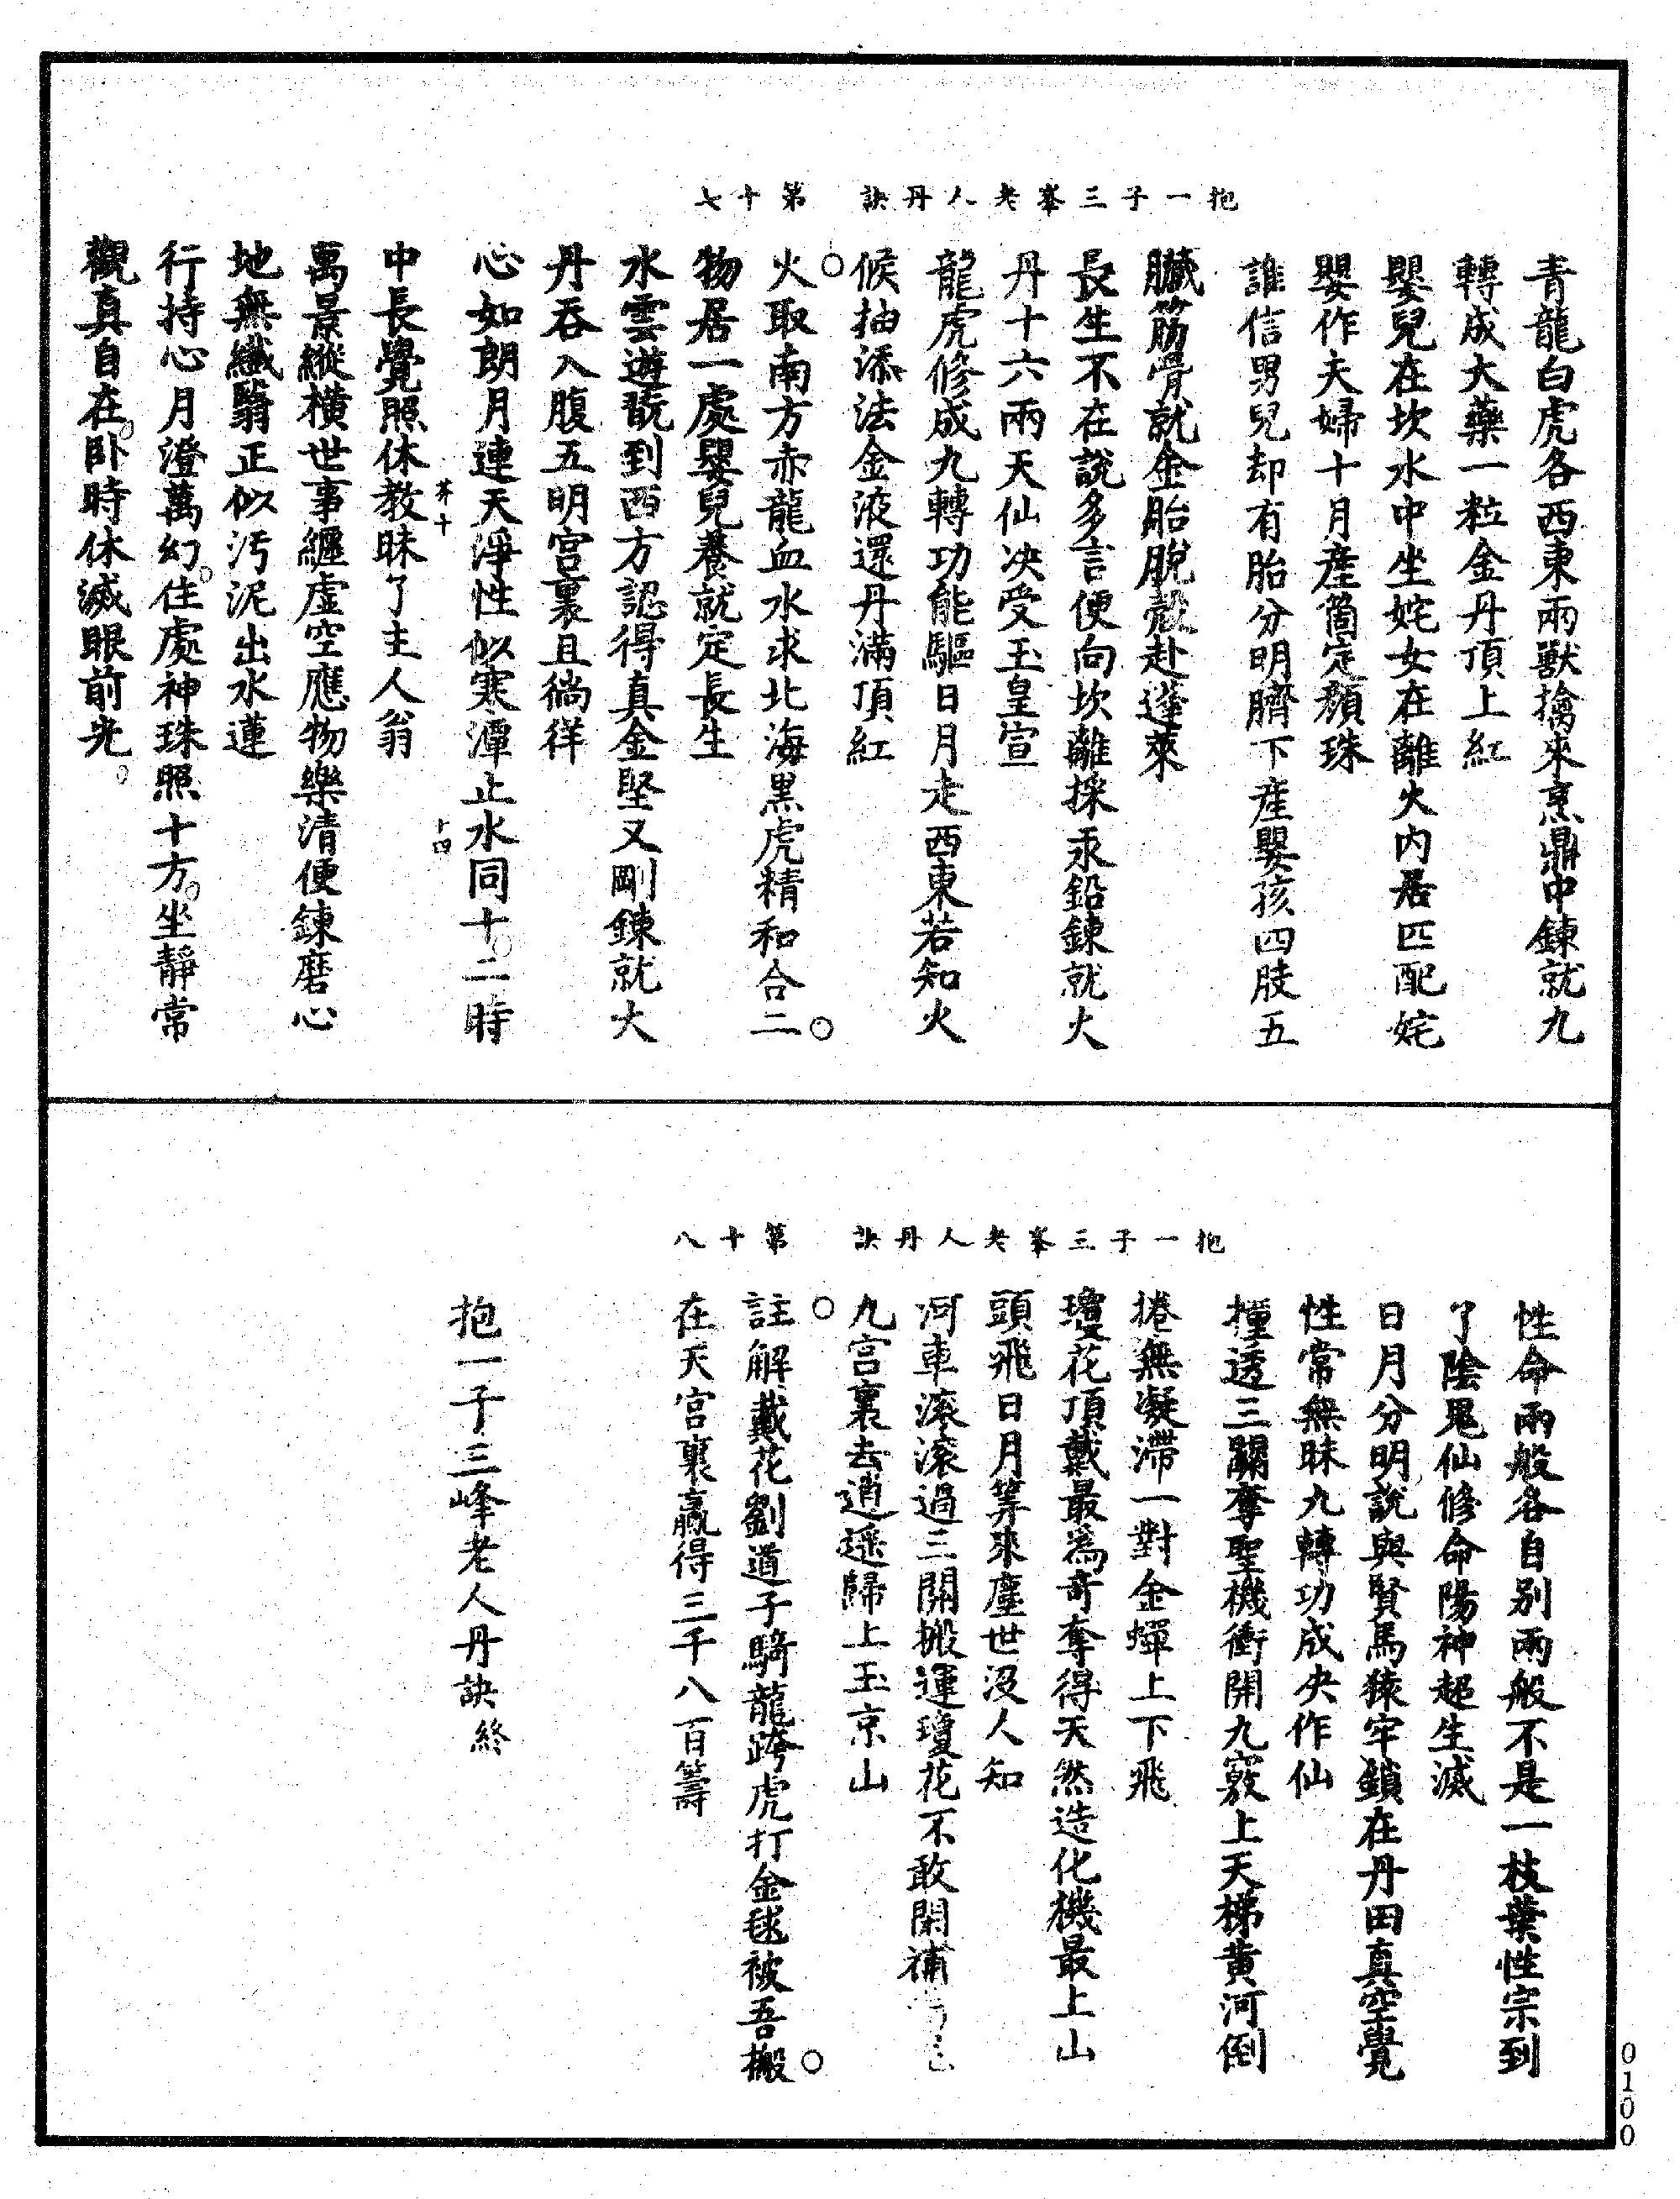 抱一子三峯老人丹訣　第十七
青龍白虎各西東兩獸擒來烹鼎中鍊就九
轉成大藥一粒金丹頂上紅
嬰兒在坎水中坐姹女在離火内居匹配姹
嬰作夫婦十月產箇定顏珠
誰信男兒却有胎分明臍下產嬰孩四肢五
臟筋骨就金胎脫殼赴蓬萊
長生不在說多言便向坎離採汞鉛鍊就大
丹十六兩天仙决受玉皇宣
龍虎修成九轉功能驅日月走西東若知火
候抽添法金液還丹滿頂紅
火取南方赤龍血水求北海黑虎精和合二
物居一處嬰兒養就定長生
水雲遊翫到西方認得真金堅又剛鍊就大
丹吞入腹五明宮裏且徜徉
心如朗月連天淨性似寒潭止水同十二時
中長覺照休教昧了主人翁
萬景縱橫世事纏虛空應物樂清便鍊磨心
地無纖翳正似污泥出水蓮
行持心月澄萬幻住處神珠照十方坐靜常
觀真自在卧時休滅眼前光
抱一子三峯老人丹訣　第十八
性命兩般各自别兩般不是一枝葉性宗到
了陰鬼仙修命陽神超生滅
日月分明說與賢馬猿牢鎖在丹田真空覺
性常無昧九轉功成决作仙
撞透三關奪聖機衝開九竅上天梯黄河倒
捲無凝滯一對金蟬上下飛
瓊花頂戴最爲奇奪得天然造化機最上山
頭飛日月筭來塵世没人知
河車滚滚過三關搬運瓊花不敢閑補
九宮裏去逍遥歸上玉京山
註解戴花劉道子騎龍跨虎打金毬被吾搬
在天宮裏贏得三千八百籌
抱一子三峰老人丹訣終
0100